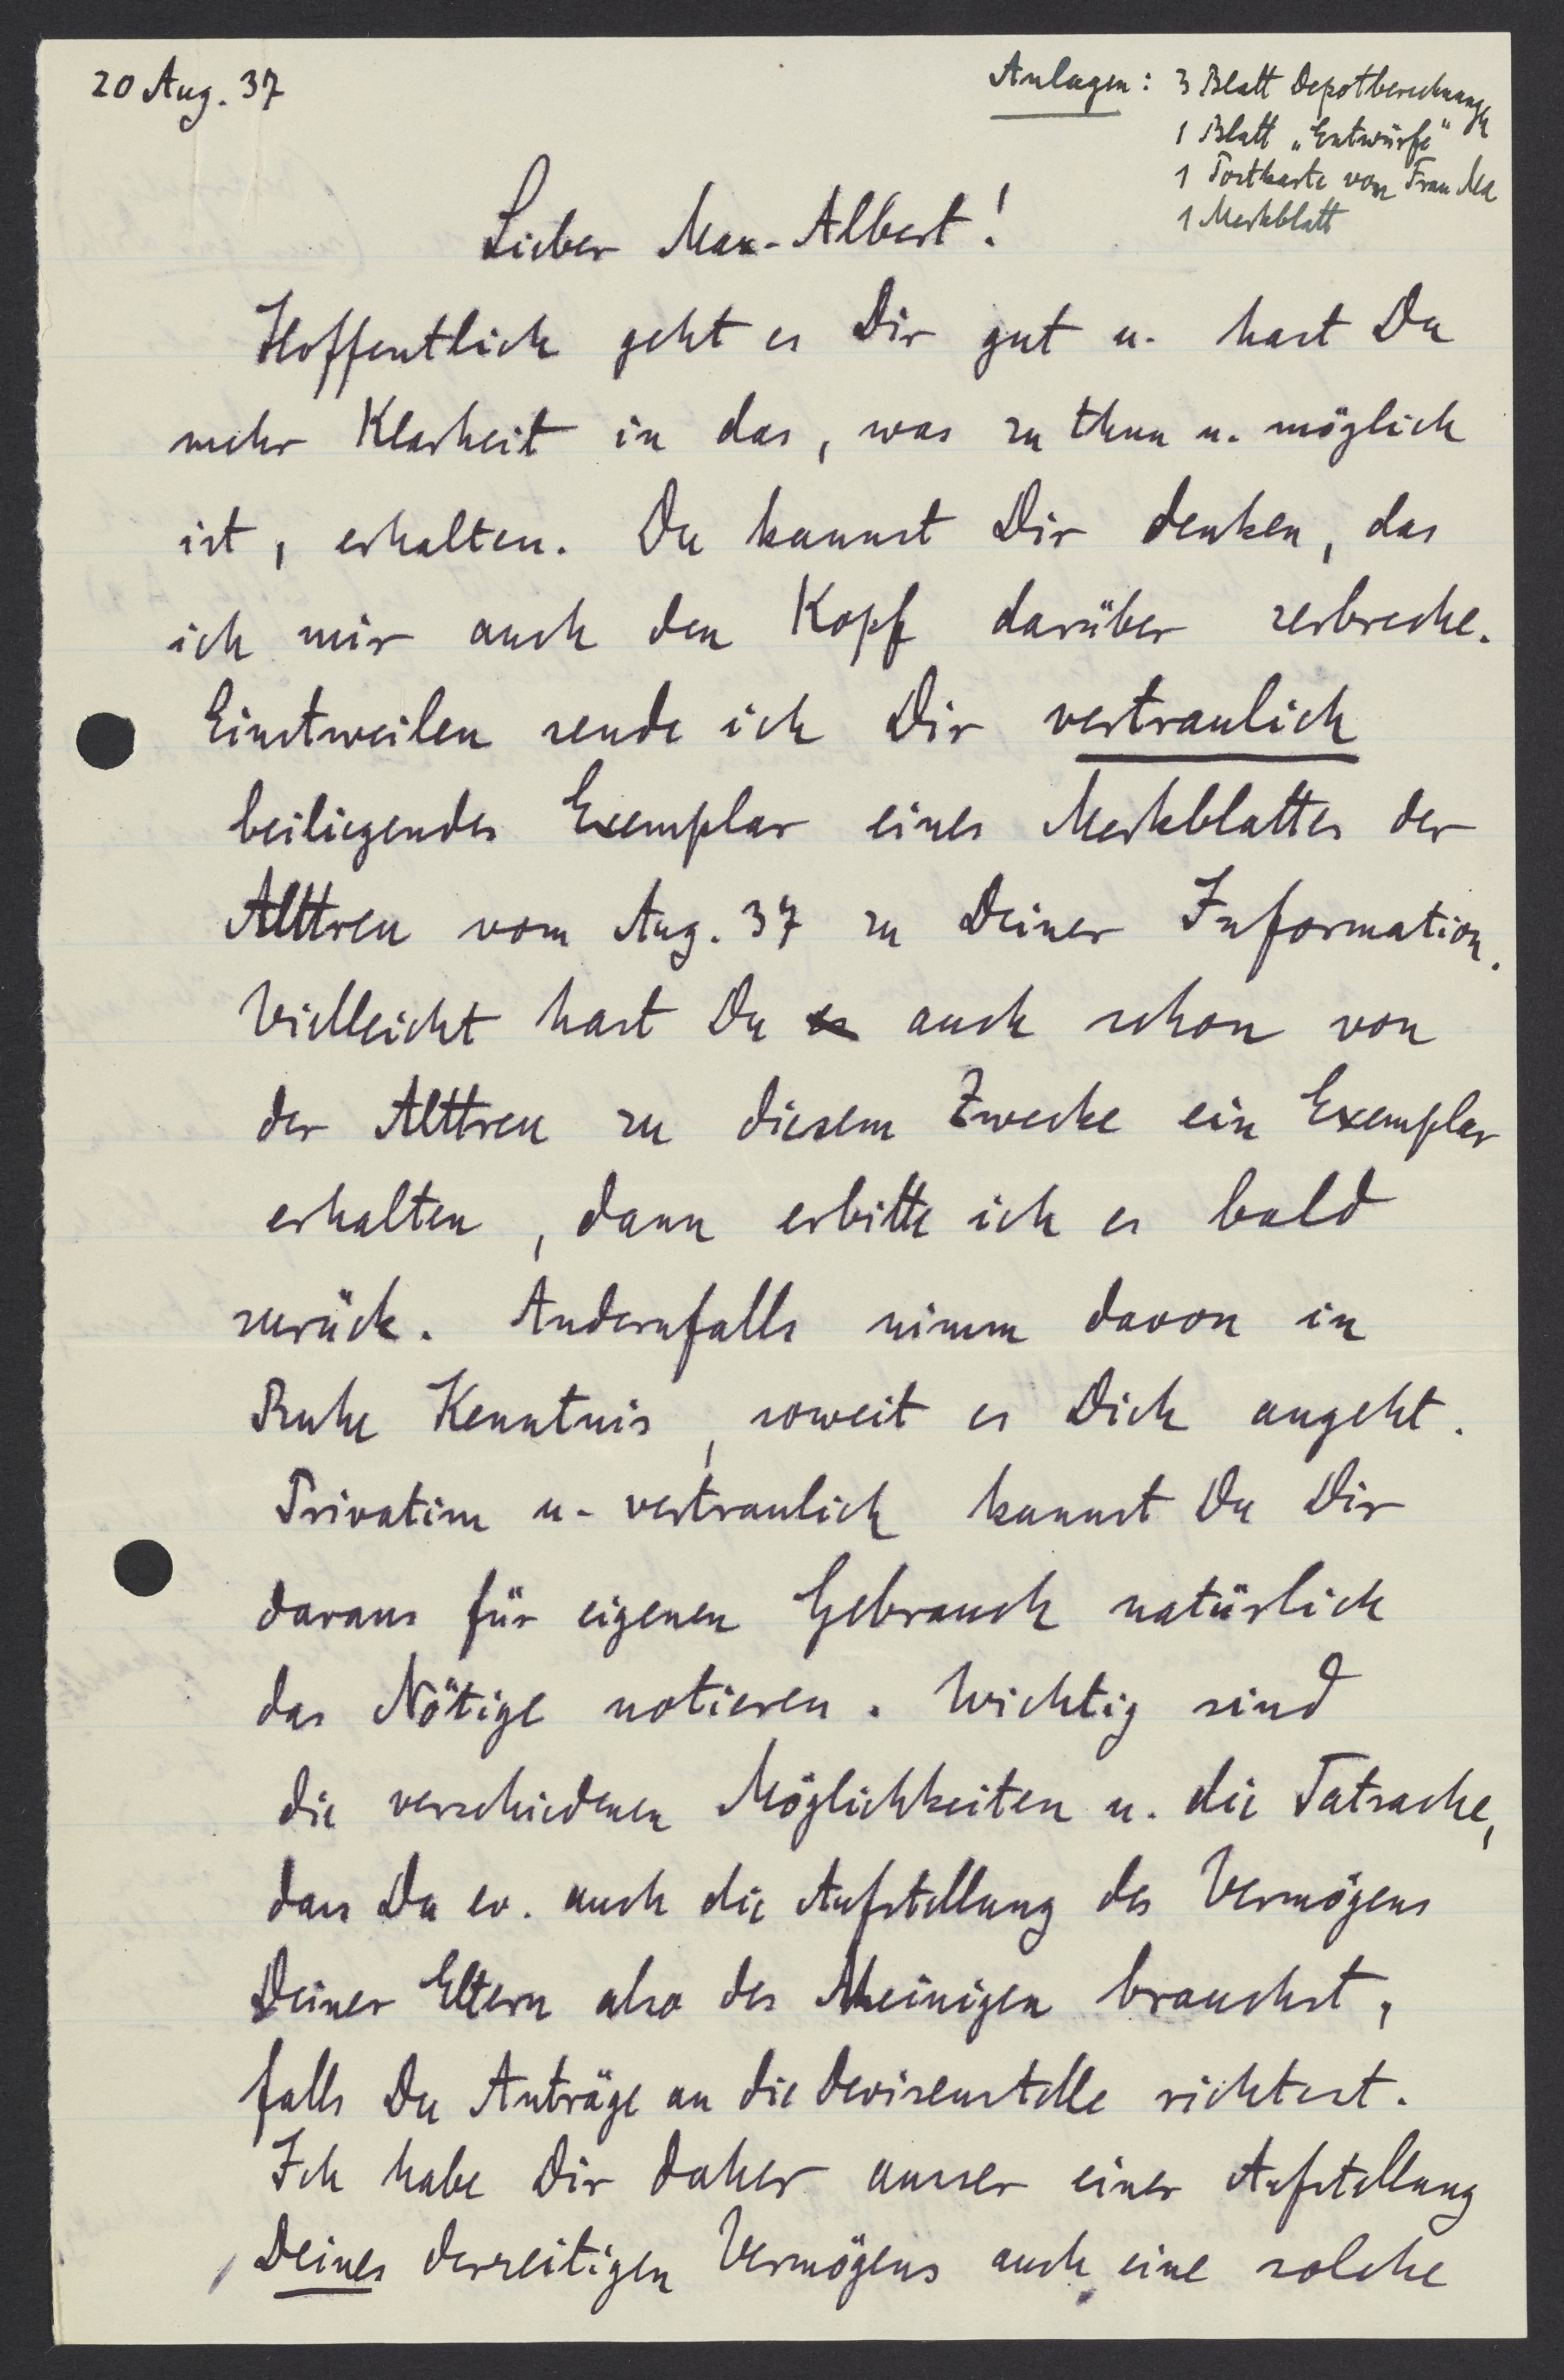 20 Aug. 37
Anlagen: 3 Blatt Depotberechnungen
1 Blatt „Entwürfe"
1 Postkarte von Frau
1 Merkblatt
Lieber Max-Albert!
Hoffentlich geht es Dir gut u. hast Du
mehr Klarheit in das, was zu thun u. möglich
ist, erhalten. Du kannst Dir denken, das
ich mir auch den Kopf darüber zerbreche.
Einstweilen sende ich Dir vertraulich
beiliegendes Exemplar eines Merkblattes der
Alttreu vom Aug. 37 zu Deiner Information.
Vielleicht hast Du es auch schon von
der Alttreu zu diesem Zwecke ein Exemplar
erhalten, dann erbitte ich es bald
zurück. Andernfalls nimm davon in
Ruhe Kenntnis, soweit es Dich angeht.
Privatim u. vertraulich kannst Du Dir
daraus für eigenen Gebrauch natürlich
das Nötige notieren. Wichtig sind
die verschiedenen Möglichkeiten u. die Tatsache,
dass Du ev. auch die Aufstellung des Vermögens
Deiner Eltern also des Meinigen brauchst,
falls Du Anträge an die Devisenstelle richtest.
Ich habe Dir daher ausser einer Aufstellung
Deines derzeitigen Vermögens auch eine solche